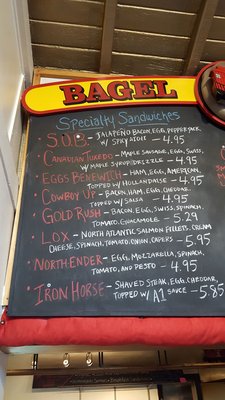 BAGEL
Specialty Sandwiches
S.O.B. - JALAPEÑO BACON, EGG, PEPPER JACK
W/ SPICY AIOLI - 4.95
CANADIAN TUXEDO - MAPLE SAUSAGE, EGG, SWISS,
W/ MAPLE SYRUP DRIZZLE - 4.95
EGGS BENEWICH - HAM, EGG, AMERICAN,
TOPPED W/ HOLLANDAISE - 4.95
COWBOY UP - BACON, HAM, EGG, CHEDDAR,
TOPPED W/ SALSA - 4.95
GOLD RUSH - BACON, EGG, SWISS, SPINACH,
TOMATO, GUACAMOLE - 5.29
LOX - NORTH ATLANTIC SALMON FILLETS, CREAM
CHEESE, SPINACH, TOMATO, ONION, CAPERS - 5.95
NORTH ENDER - EGG, MOZZARELLA, SPINACH,
TOMATO, AND PESTO - 4.95
IRON HORSE - SHAVED STEAK, EGG, CHEDDAR,
TOPPED W/ A1 SAUCE - 5.85